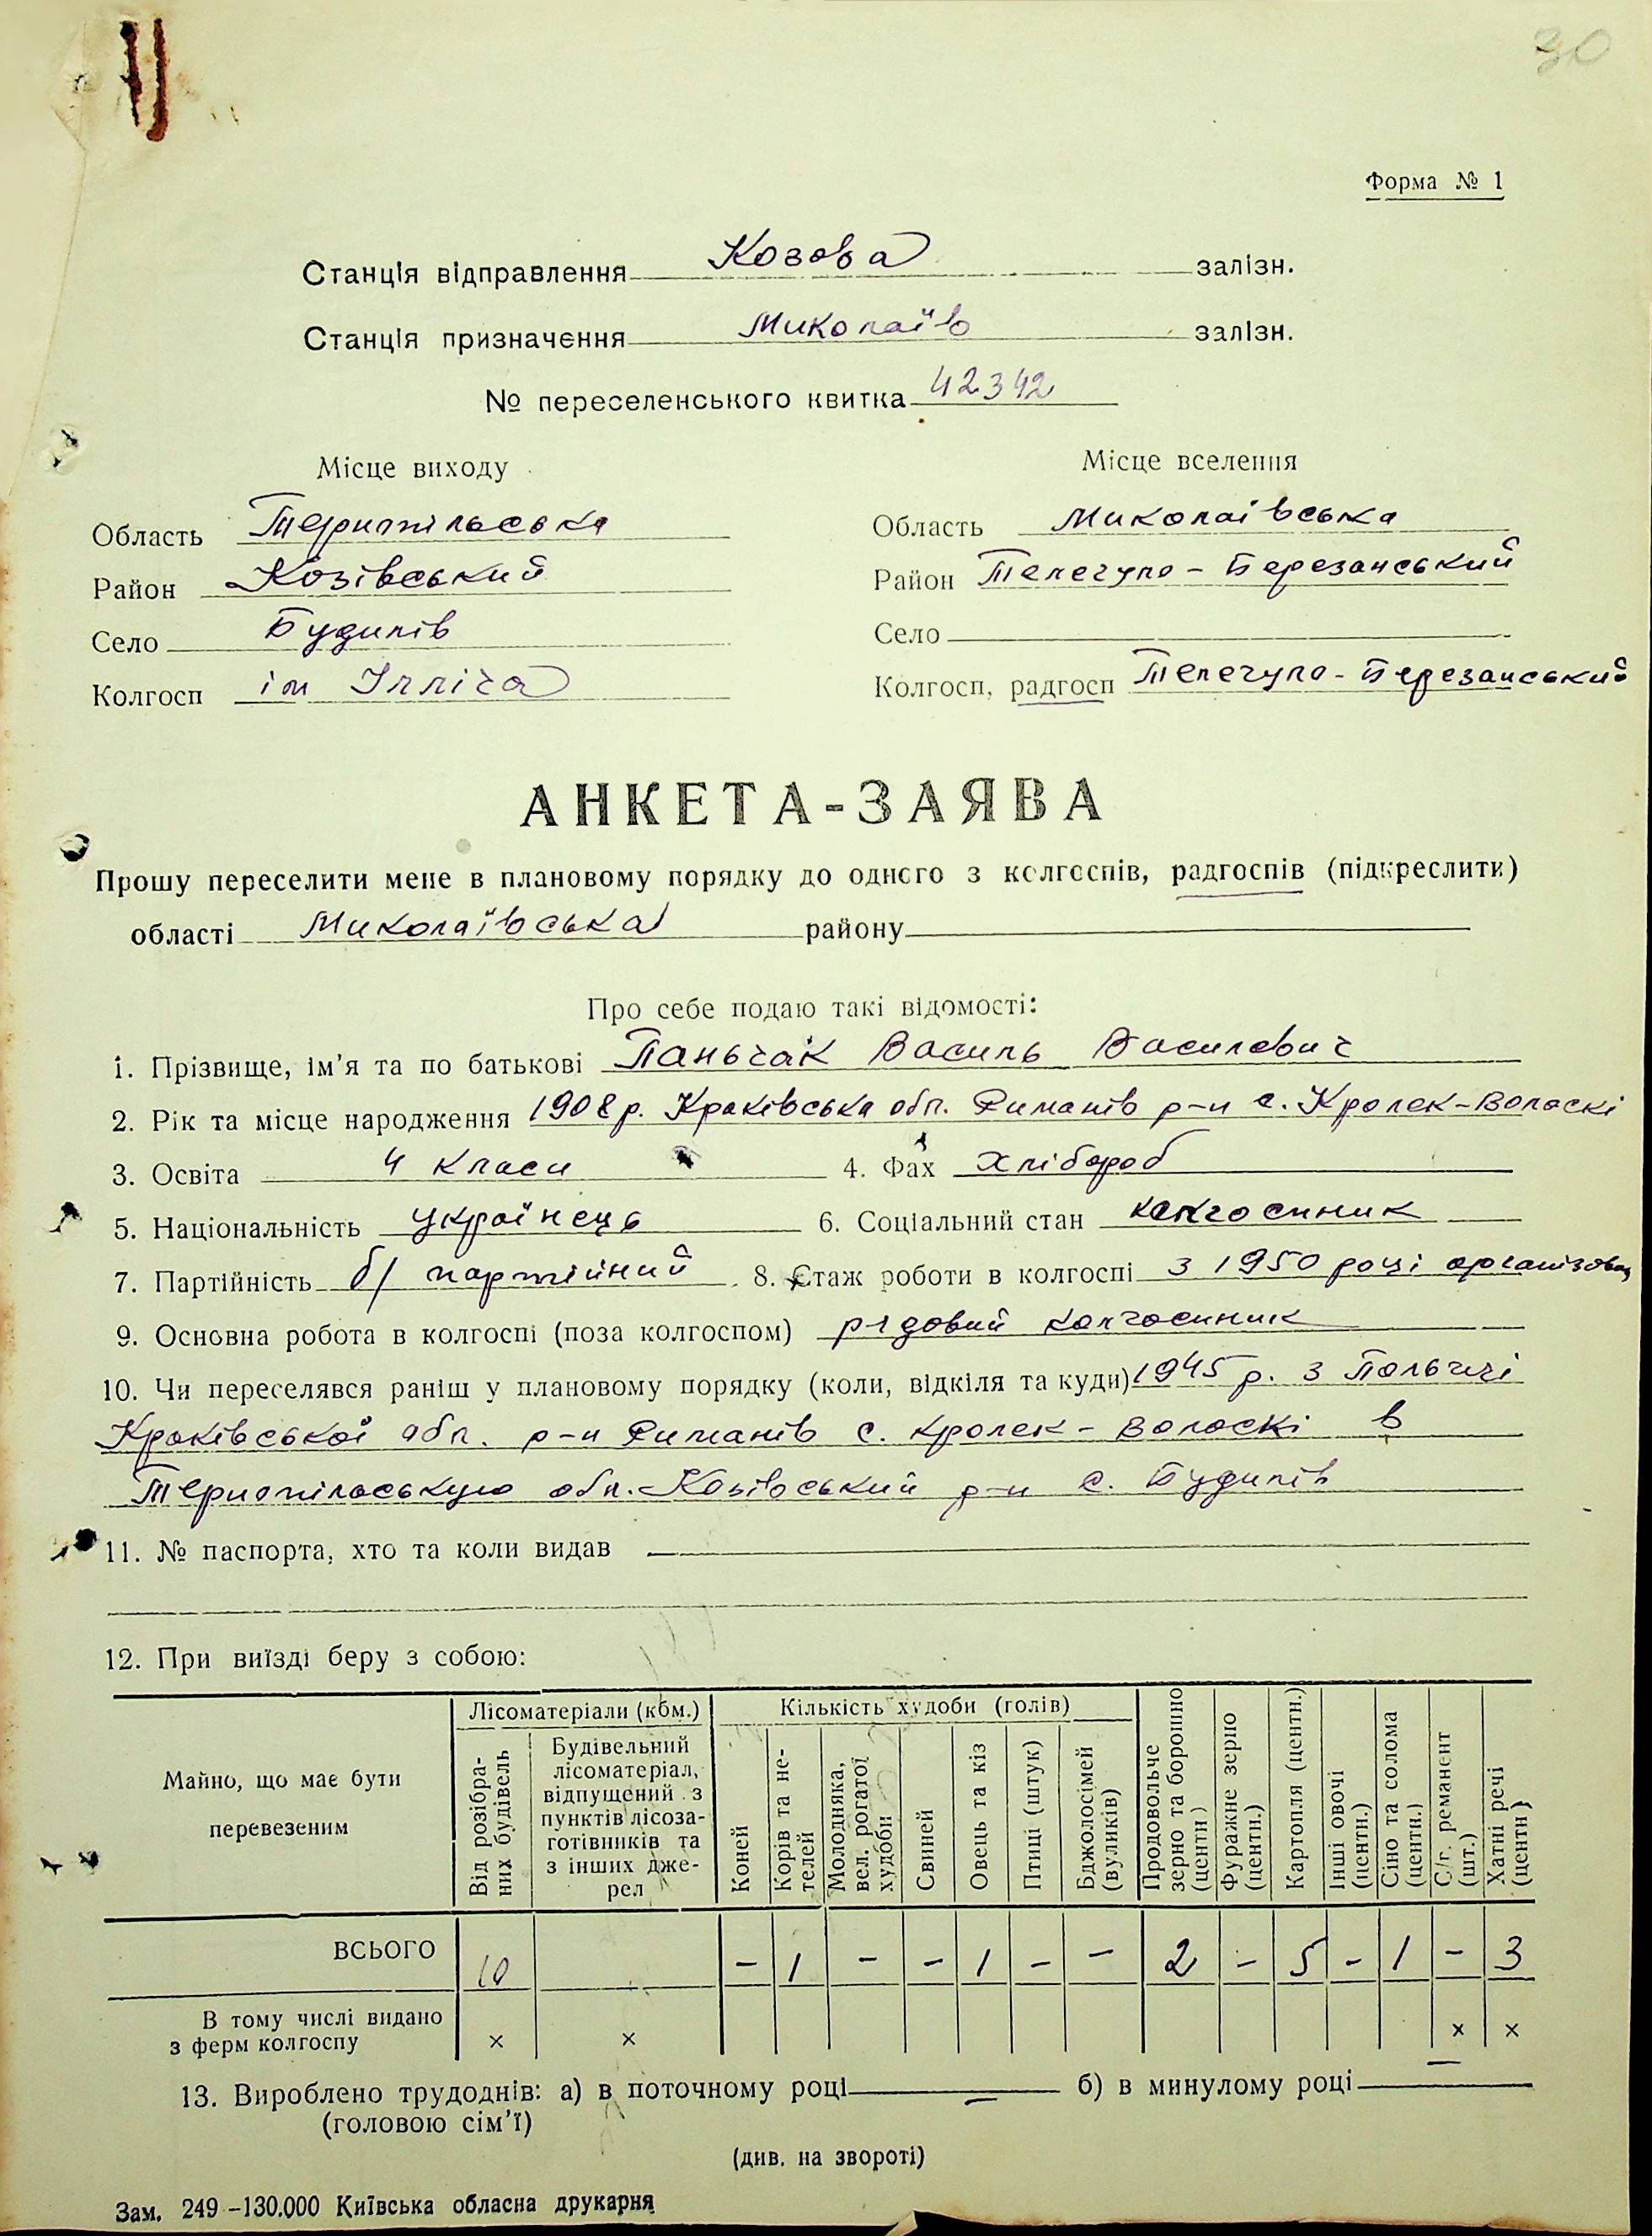 30
Форма № 1
Станція відправлення Козова залізн.
Станція призначення Миколаїв залізн.
№ переселенського квитка 42342
Місце виходу Місце вселення
Область Тернопільська Область Миколаївська
Район Козівський Район Телегуло-Березанський
Село Будилів Село
Колгосп ім Ілліча Колгосп, радгосп Телегуло-Березанський
АНКЕТА-ЗАЯВА
Прошу переселити мене в плановому порядку до одного з колгоспів, радгоспів (підкреслити)
області Миколаївська району
Про себе подаю такі відомості:
1. Прізвище, ім'я та по батькові Паньчак Василь Васильович
2. Рік та місце народження 1908 р. Краківська обл. Риманів р-н с. Кролек-Волоскі
3. Освіта 4 класи 4. Фах хлібороб
5. Національність українець 6. Соціальний стан колгоспник
7. Партійність б/партійний 8. Стаж роботи в колгоспі з 1950 році
9. Основна робота в колгоспі (поза колгоспом) рядовий колгоспник
10. Чи переселявся раніш у плановому порядку (коли, відкіля та куди) 1945 р. з Польщі
Краківської обл. р-н Риманів с. Кролек-Волоскі в
Тернопільську обл. Козівський р-н с. Будилів
11. № паспорта, хто та коли видав
12. При виїзді беру з собою:
Майно, що має бути перевезеним
Лісоматеріали (кбм.) Кількість худоби (голів)
Від розібраних будівель
Будівельний лісоматеріал, відпущений з пунктів лісозаготівників та з інших джерел
Коней
Корів та нетелей
Молодняка, вел. рогатої худоби
Свиней
Овець та кіз
Птиці (штук)
Бджолосімей (вуликів)
Продовольче зерно та борошно (центн)
Фуражне зерно (центн.)
Картопля (центн.)
Інші овочі (центн.)
Сіно та солома (центн.)
С/г. реманент (шт.)
Хатні речі (центн)
ВСЬОГО 10 – 1 – – 1 – – 2 – 5 – 1 – 3
В тому числі видано
з ферм колгоспу × × × ×
13. Вироблено трудоднів: а) в поточному році — б) в минулому році —
(головою сім'ї)
(див. на звороті)
Зам. 249–130.000 Київська обласна друкарня